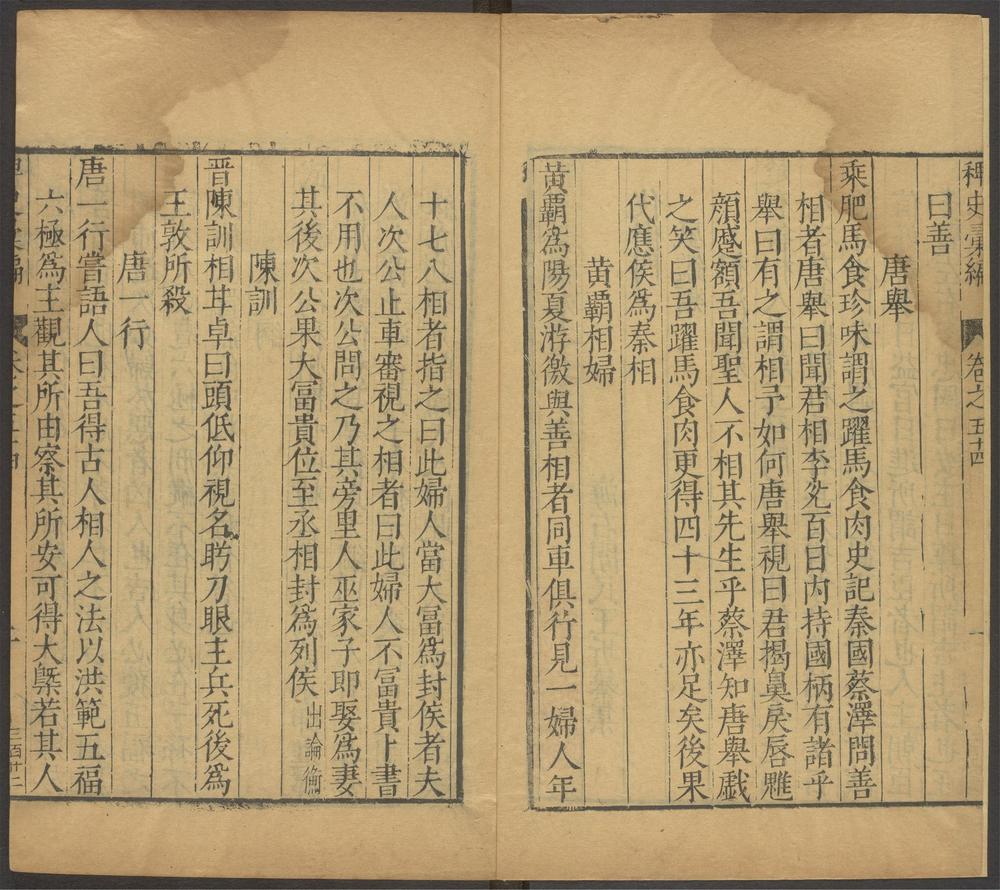 稗史彙編 卷之五十四 一
曰善
唐舉
乘肥馬食珍味謂之躍馬食肉史記秦國蔡澤問善
相者唐舉曰聞君相李兊百日内持國柄有諸乎
舉曰有之謂相予如何唐舉視曰君揭鼻戾唇魋
顔蹙額吾聞聖人不相其先生乎蔡澤知唐舉戲
之笑曰吾躍馬食肉更得四十三年亦足矣後果
代應侯爲秦相
黄霸相婦
黄霸爲陽夏游徼與善相者同車俱行見一婦人年
十七八相者指之曰此婦人當大冨爲封侯者夫
人次公止車審視之相者曰此婦人不冨貴卜書
不用也次公問之乃其旁里人巫家子即娶爲妻
其後次公果大冨貴位至丞相封爲列侯 出論衡
陳訓
晉陳訓相甘卓曰頭低仰視名盻刀眼主兵死後爲
王敦所殺
唐一行
唐一行嘗語人曰吾得古人相人之法以洪範五福
六極爲主觀其所由察其所安可得大槩若其人
三百廿二